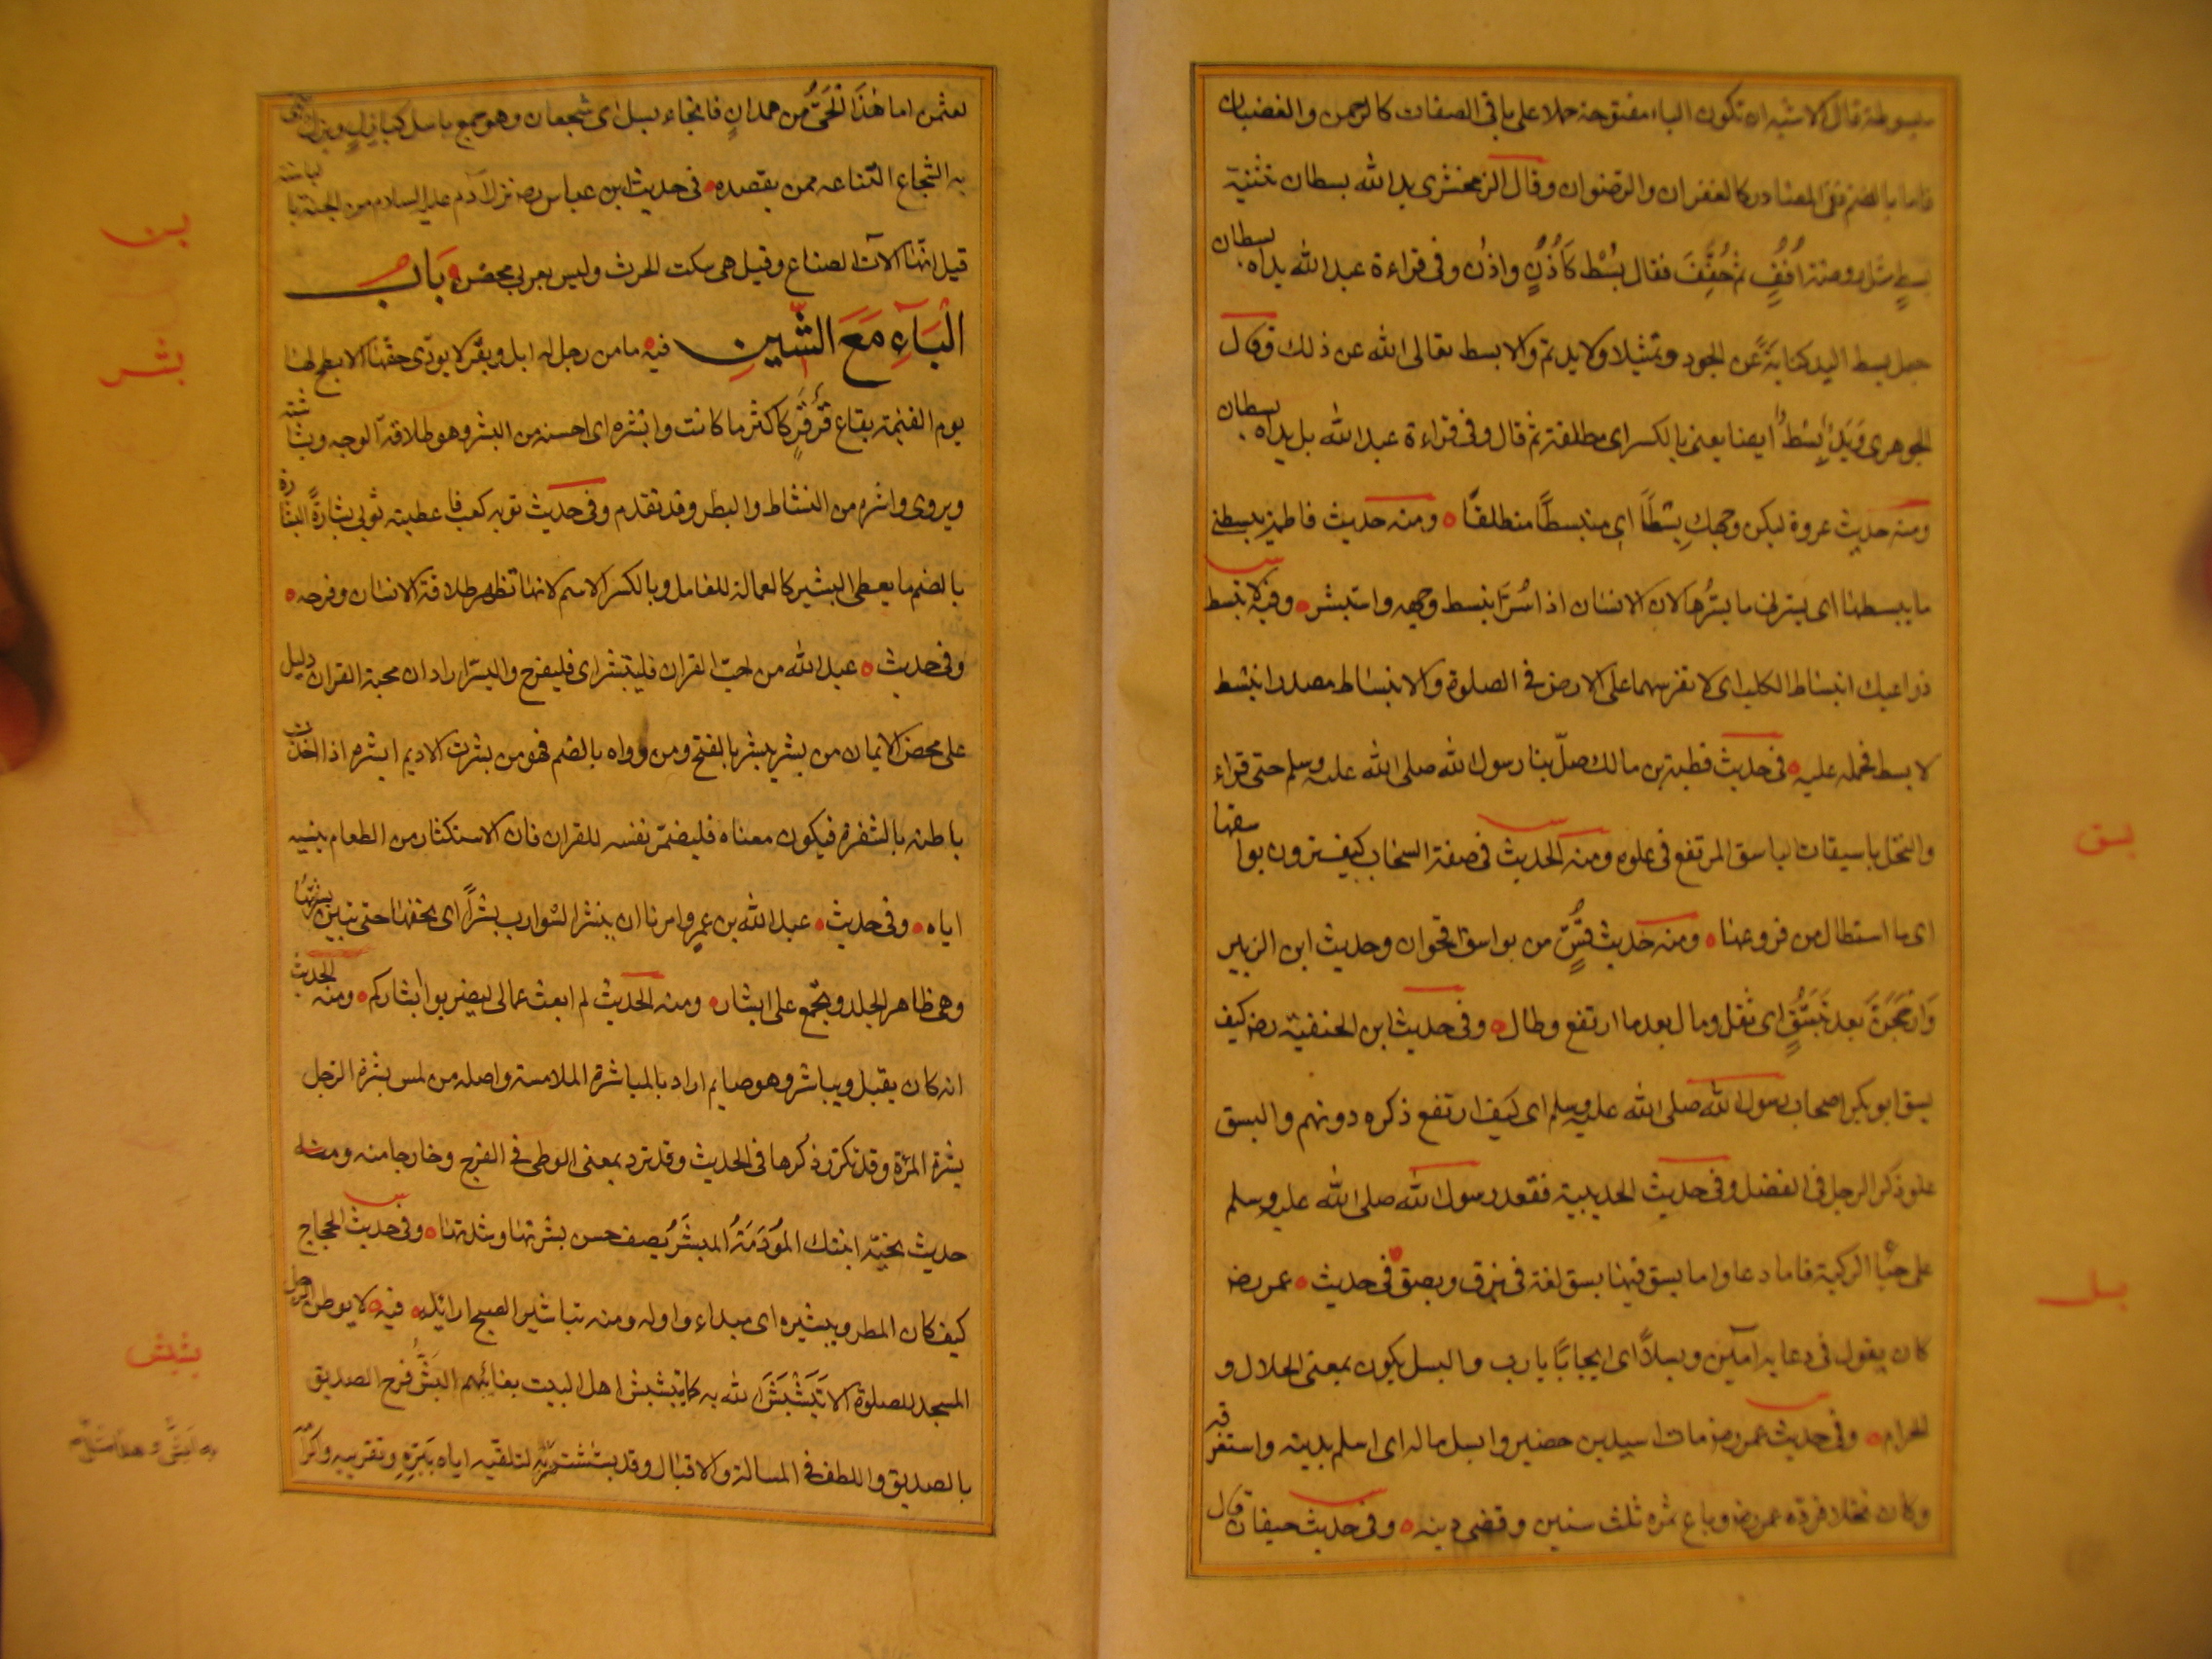 مبسوطة قال الاشبه ان تكون الباء مفتوحة حملا على باقى الصفات كالرحمن والغضبان
فاما بالضم ففى المصادر كالغفران والرضوان وقال الزمخشرى يد الله بسطان تثنية
بسط مثل روضة اُنُفٍ ثم خُفِّفَ فقال بُسْط كاُذُنٍ واذن وفى قراءة عبد الله يداه بسطان
جعل بسط اليد كنايةً عن الجود وتمثيلا ولا يد ثم ولا بسط تعالى الله عن ذلك وقال
الجوهرى وَيَدٌ بِسْطٌ ايضا يعنى بالكسر اى مطلقة ثم قال وفى قراءة عبد الله بل يداه بسطان
ومنه حديث عروة ليكن وجهك بِسْطًا اى منبسطًا منطلقًا ومنه حديث فاطمة يبسطنى
ما يبسطها اى يسرنى ما يسرُّها لان الانسان اذا سُرَّ انبسط وجهه واستبشر وفيه لا تبسط
ذراعيك انبساط الكلب اى لا تفرشهما على الارض فى الصلوة والانبساط مصدر انبسط
لا بسط فحمله عليه فى حديث قطبة بن مالك صلّى بنا رسول الله صلى الله عليه وسلم حتى قراء
والنخل باسقات الباسق المرتفع فى علوه ومنه الحديث فى صفة السحاب كيف ترون بواسقها
اى ما استطال من فروعها ومنه حديث قُسٍّ من بواسق اقحوان وحديث ابن الزبير
وَارْجَحَنَّ بعد تَبَسُّقٍ اى ثقل ومال بعد ما ارتفع وطال وفى حديث ابن الحنفية رض كيف
بسق ابو بكر اصحاب رسول الله صلى الله عليه وسلم اى كيف ارتفع ذكره دونهم والبسق
علو ذكر الرجل فى الفضل وفى حديث الحديبية فقعد رسول الله صلى الله عليه وسلم
على جَبَا الركية فاما دعا واما بسق فيها بسق لغة فى بزق وبصق فى حديث عمر رض
كان يقول فى دعايه آمين وبسلاً اى ايجابًا يا رب والبسل يكون بمعنى الحلال و
الحرام وفى حديث عمر رض مات اسيد بن حضير وابسل ماله اى اسلم بدينه واستغرقه
وكان نخلا فرده عمر رض وباع ثمره ثلث سنين وقضى دينه وفى حديث خيفان قال
بسق
بسل
لعثمن اما هٰذَا الْحَىُّ من همدانٍ فانجاد بسل اى شجعان وهو جمع باسل كبازل وبزل سمى
به الشجاع لامتناعه ممن يقصده فى حديث ابن عباس رض نزل آدم عليه السلام من الجنة بالباسنة
قيل انها الات الصناع وقيل هى سكت الحرث وليس بعربى محض بَاب
الْبَآءِ مَعَ الشِّينِ فيه ما من رجل له ابل وبقر لا يودى حقها الا بطح لها
يوم القيمة بقاع قَرْقَرٍ كاكثر ما كانت وابشره اى احسنه من البشر وهو طلاقة الوجه وبشاشته
ويروى واشره من النشاط والبطر وقد تقدم وفى حديث توبة كعب فاعطيته ثوبى بشارةً البشارة
بالضم ما يعطى البشير كالعمالة للعامل وبالكسر الاسم لانها تظهر طلاقة الانسان وفرحه
وفى حديث عبد الله من احب القران فليبشر اى فليفرح وليسرّ اراد ان محبة القران دليل
على محض الايمان من بشر يبشر بالفتح ومن رواه بالضم فهو من بشرت الاديم ابشره اذا اخذت
باطنه بالشفرة فيكون معناه فليضمر نفسه للقران فان الاستكثار من الطعام ينسيه
اياه وفى حديث عبد الله بن عمرٍو امرنا ان نبشر الشوارب بشرًا اى نحفها حتى تبين بشرتها
وهى ظاهر الجلد وتجمع على ابشار ومنه الحديث لم ابعث عمالى ليضربوا ابشاركم ومنه الحديث
انه كان يقبل ويباشر وهو صايم اراد بالمباشرة الملامسة واصله من لمس بشرة الرجل
بشرة المرٔة وقد تكرر ذكرها فى الحديث وقد ترد بمعنى الوطى فى الفرج وخارجا منه ومنه
حديث نجيّة ابنتك المُؤدَمَةُ المبشَرةُ يصف حسن بشرتها وشدتها وفى حديث الحجاج
كيف كان المطر وتبشيره اى مبداء واوله ومنه تباشير الصبح اوائله فيه لا يوطن الرجل
المسجد للصلوة الا تَبَشْبَشَ الله به كما يتبشبش اهل البيت بغائبهم البَشُّ فرح الصديق
بالصديق واللطف فى المسالة والاقبال وقد بششت به لتلقيه اياه ببَرّهِ وتقريبه
بشر
بشبش